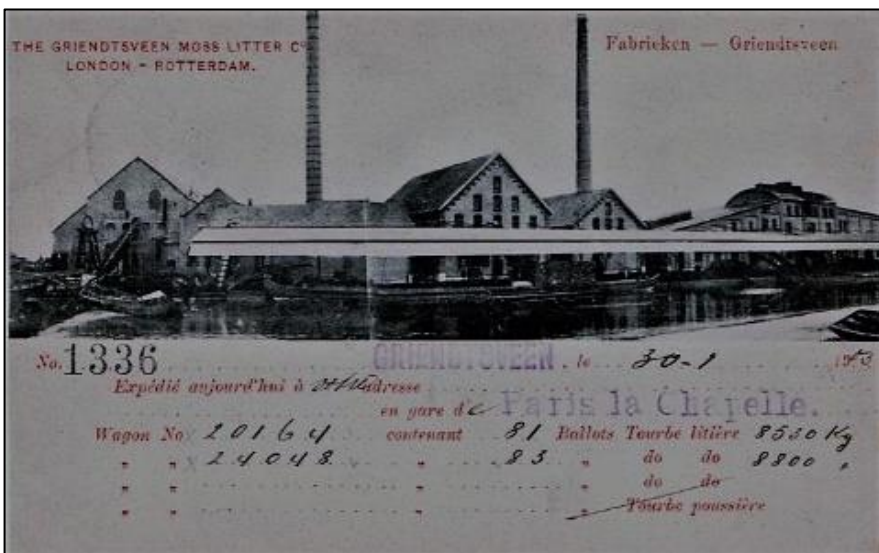 THE GRIENDTSVEEN MOSS LITTER Co
LONDON - ROTTERDAM.
Fabrieken — Griendtsveen
No. 1336 GRIENDTSVEEN. le 30-1
Expédié aujourd'hui à adresse
en gare de Paris la Chapelle.
Wagon No 20164 contenant 81 Ballots Tourbe litière Kg
" " 24048 " 83 " do do 8800 "
" " " " do do
" " " " Tourbe poussière